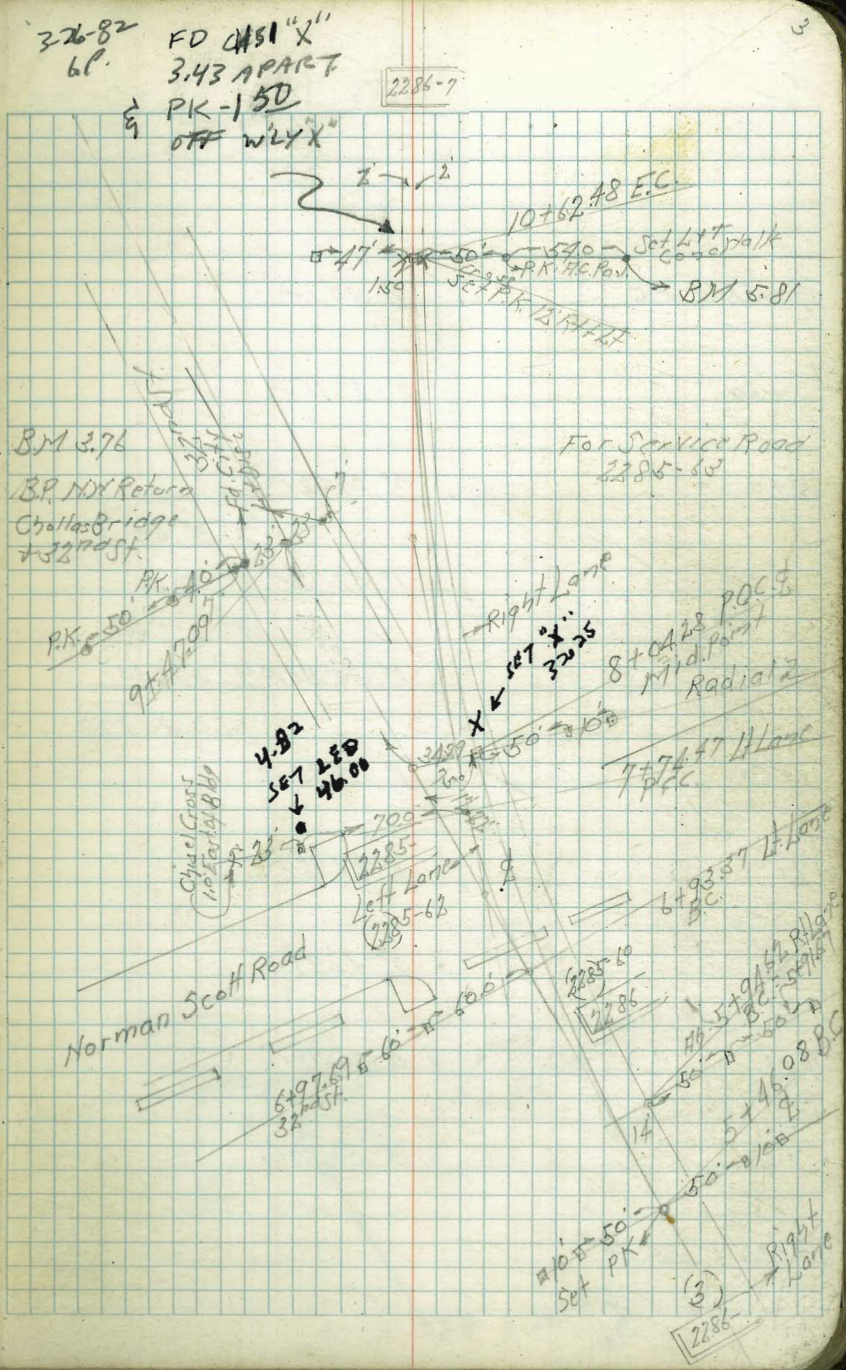 3
3-26-82
6P.
FD CHSl "X"
3.43 APART
& PK-1 50
OFF W'LY "X"
2286-7
2' 2'
10+62.48 E.C.
47'
50'
54.0
Set L+T
Conc Walk
1.50
P.K. A.C. Pav.
Set P.K. 12' Rt+Lt
BM 5.81
BM 3.76
B.P. NW Return
Chollas Bridge
+32nd St.
For Service Road
2285-63
7'
23'
23'
P.K. 40'
P.K. 50'
9+47.097
Right Lane
SET "X"
32.025
8+04.28 P.O.C. ℄
Mid. Point
Radial 2
X
34.89
50' 10'
7+74.47 Lt Lane
P.C.C.
4-82
SET LED
46.00
Chisel Cross
1.0' East of Bldg
23'
70.0
2285-
Left Lane
(2285-62
℄
6+93.37 Lt. Lane
B.C.
Norman Scott Road
(2285-60
2286
60.0
60'
6+97.69
32nd St.
Ah. 5+94.62 Rt Lane
B.C. 5+91.67
50' 50'
14
5+46.08 B.C.
℄
50' 10'
10' 50'
Set PK
(3)
2286-
Right
Lane